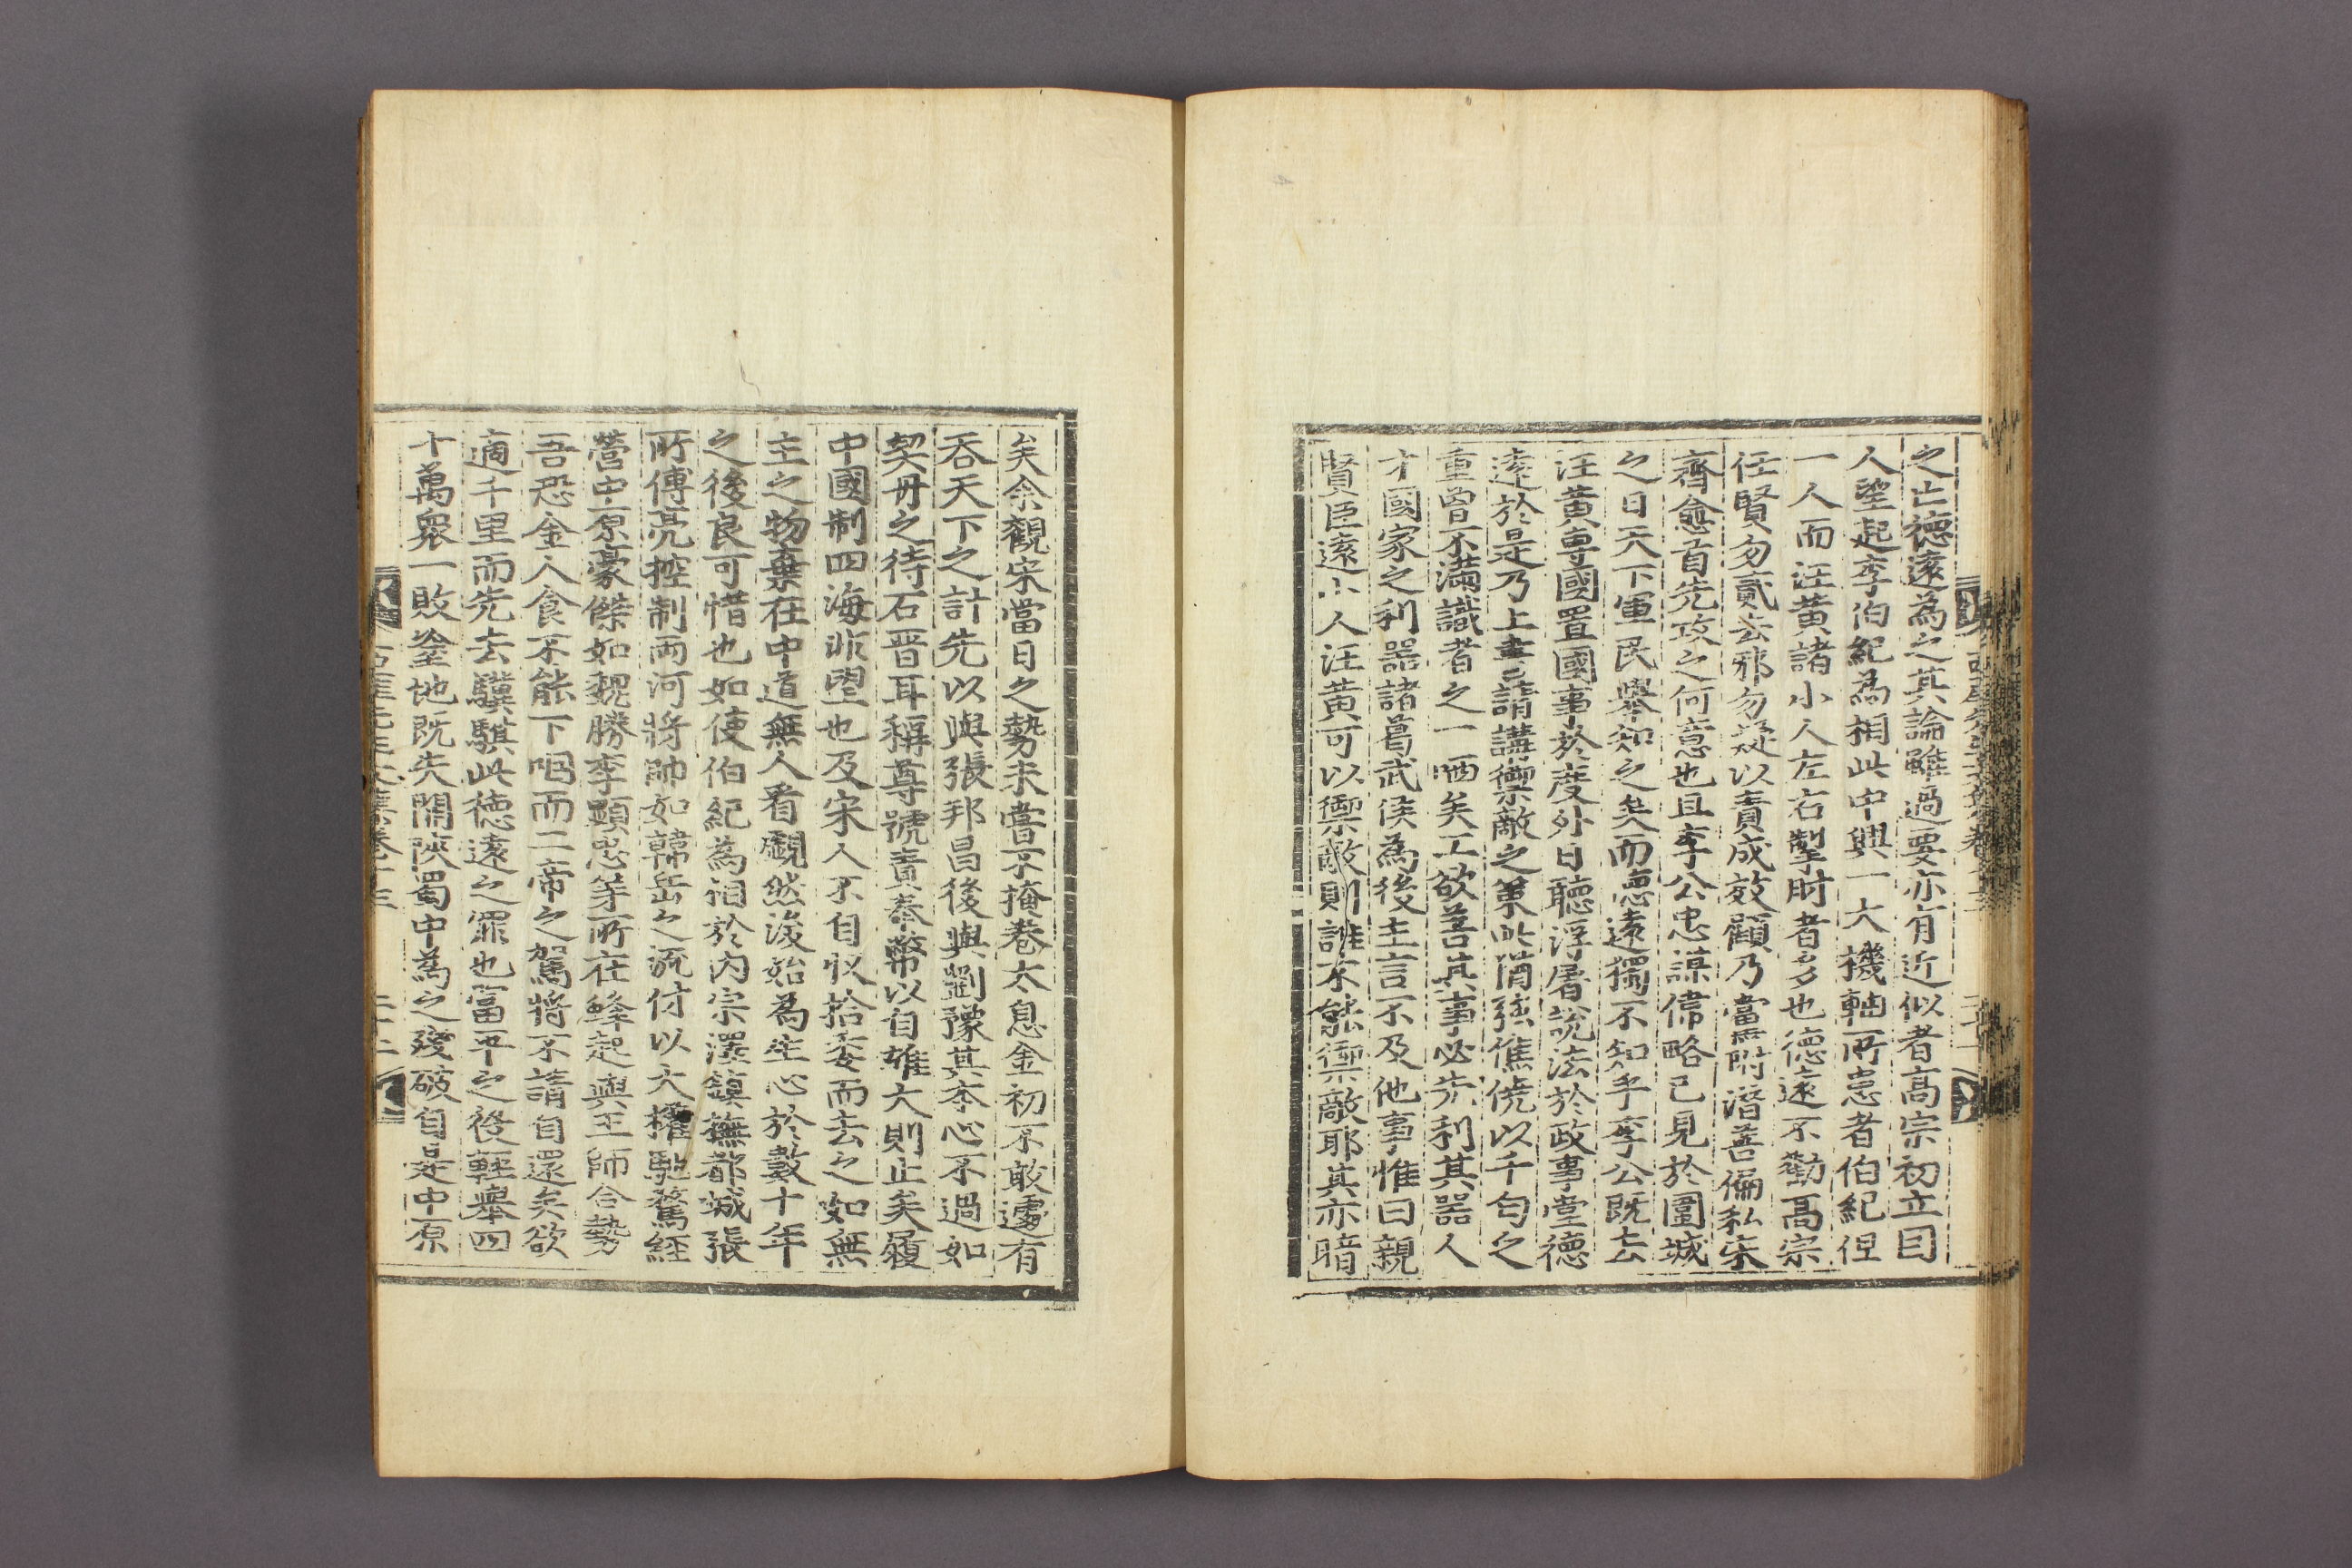 之亡德遠爲之其論雖過要亦有近似者高宗初立因
人望起李伯紀爲相此中興一大機軸所恃者伯紀但
一人而汪黃諸小人左右掣肘者多也德遠不勸高宗
任賢勿貳去邪勿疑以責成效顧乃當附潛善偏私宋
齊愈首先攻之何意也且李公忠謀偉略已見於圍城
之日天下軍民舉知之矣而德遠獨不知乎李公旣去
汪黃專國置國事於度外日聽浮屠說法於政事堂德
遠於是乃上書請講禦敵之策此猶強僬僥以千勻之
重曾不滿識者之一哂矣工欲善其事必先利其器人
才國家之利器諸葛武侯爲後主言不及他事惟曰親
賢臣遠小人汪黃可以禦敵則誰不能禦敵耶其亦暗
矣余觀宋當日之勢未嘗不掩卷太息金初不敢遽有
吞天下之計先以與張邦昌後與劉豫其本心不過如
契丹之待石晋耳稱尊號責奉幣以自雄大則止矣履
中國制四海非望也及宋人不自收拾委而去之如無
主之物棄在中道無人看覷然後始爲生心於數十年
之後良可惜也如使伯紀爲相於內宗澤鎭撫都城張
所傅亮控制兩河將帥如韓岳之流付以大權馳騖經
營中原豪傑如魏勝李顯忠等所在蜂起與王師合勢
吾恐金人食不能下咽而二帝之駕將不請自還矣欲
適千里而先去騏驥此德遠之罪也富平之役輕擧四
十萬衆一敗塗地旣失關陝蜀中爲之殘破自是中原